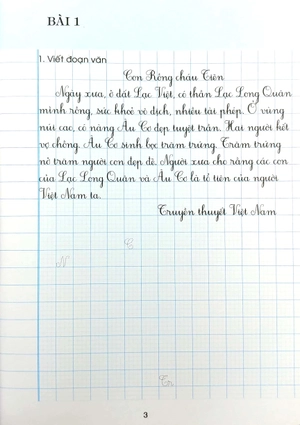 BÀI 1
1. Viết đoạn văn
Con Rồng cháu Tiên
Ngày xưa, ở đất Lạc Việt, có thần Lạc Long Quân
mình rồng, sức khoẻ vô địch, nhiều tài phép. Ở vùng
núi cao, có nàng Âu Cơ đẹp tuyệt trần. Hai người kết
vợ chồng. Âu Cơ sinh bọc trăm trứng. Trăm trứng
nở trăm người con đẹp đẽ. Người xưa cho rằng các con
của Lạc Long Quân và Âu Cơ là tổ tiên của người
Việt Nam ta.
Truyền thuyết Việt Nam
N
3